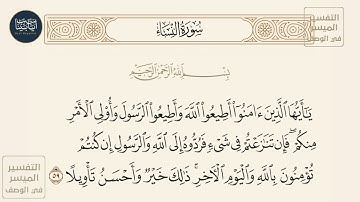 سُورَةُ النِّسَاءِ
التفسير
الميسر
في الوصف
بِسْمِ اللَّهِ الرَّحْمَٰنِ الرَّحِيمِ
يَٰٓأَيُّهَا الَّذِينَ ءَامَنُوٓا۟ أَطِيعُوا۟ اللَّهَ وَأَطِيعُوا۟ الرَّسُولَ وَأُو۟لِى الْأَمْرِ
مِنكُمْ ۖ فَإِن تَنَٰزَعْتُمْ فِى شَىْءٍ فَرُدُّوهُ إِلَى اللَّهِ وَالرَّسُولِ إِن كُنتُمْ
تُؤْمِنُونَ بِاللَّهِ وَالْيَوْمِ الْءَاخِرِ ۚ ذَٰلِكَ خَيْرٌ وَأَحْسَنُ تَأْوِيلًا ٥٩
التفسير
الميسر
في الوصف